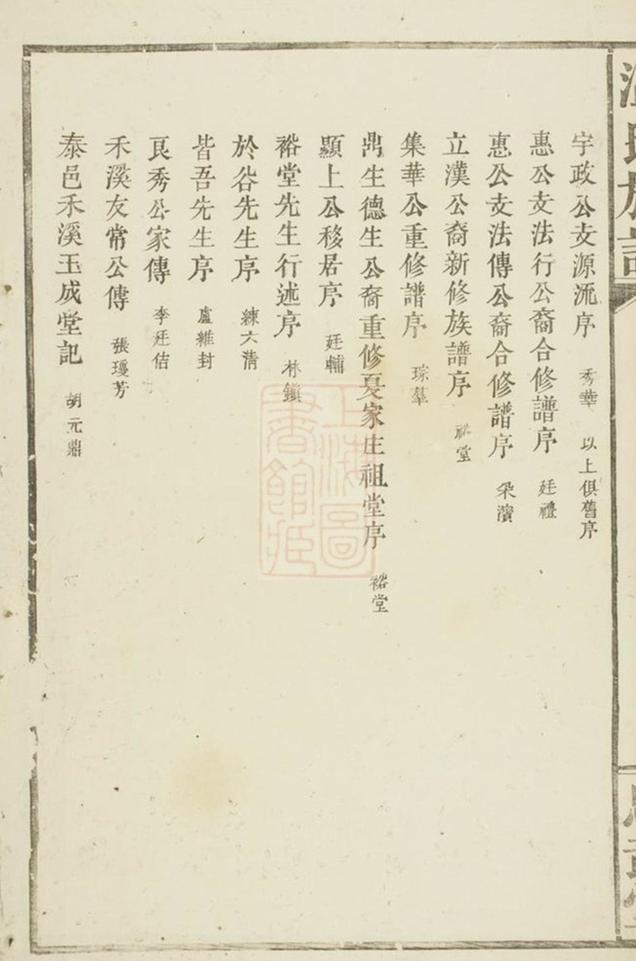 宇政公支源流序 秀華 以上俱舊序
惠公支法行公裔合修譜序 廷禮
惠公支法傳公裔合修譜序 采濱
立漢公裔新修族譜序 裕堂
集華公重修譜序 琮羣
鼎生德生公裔重修夏家庄祖堂序 裕堂
顯上公移居序 廷輔
裕堂先生行述序 林鎭
於谷先生序 練六淸
皆吾先生序 盧維封
艮秀公家傳 李廷佶
禾溪友常公傳 張瓊芳
泰邑禾溪玉成堂記 胡元鼎
上海圖書館藏